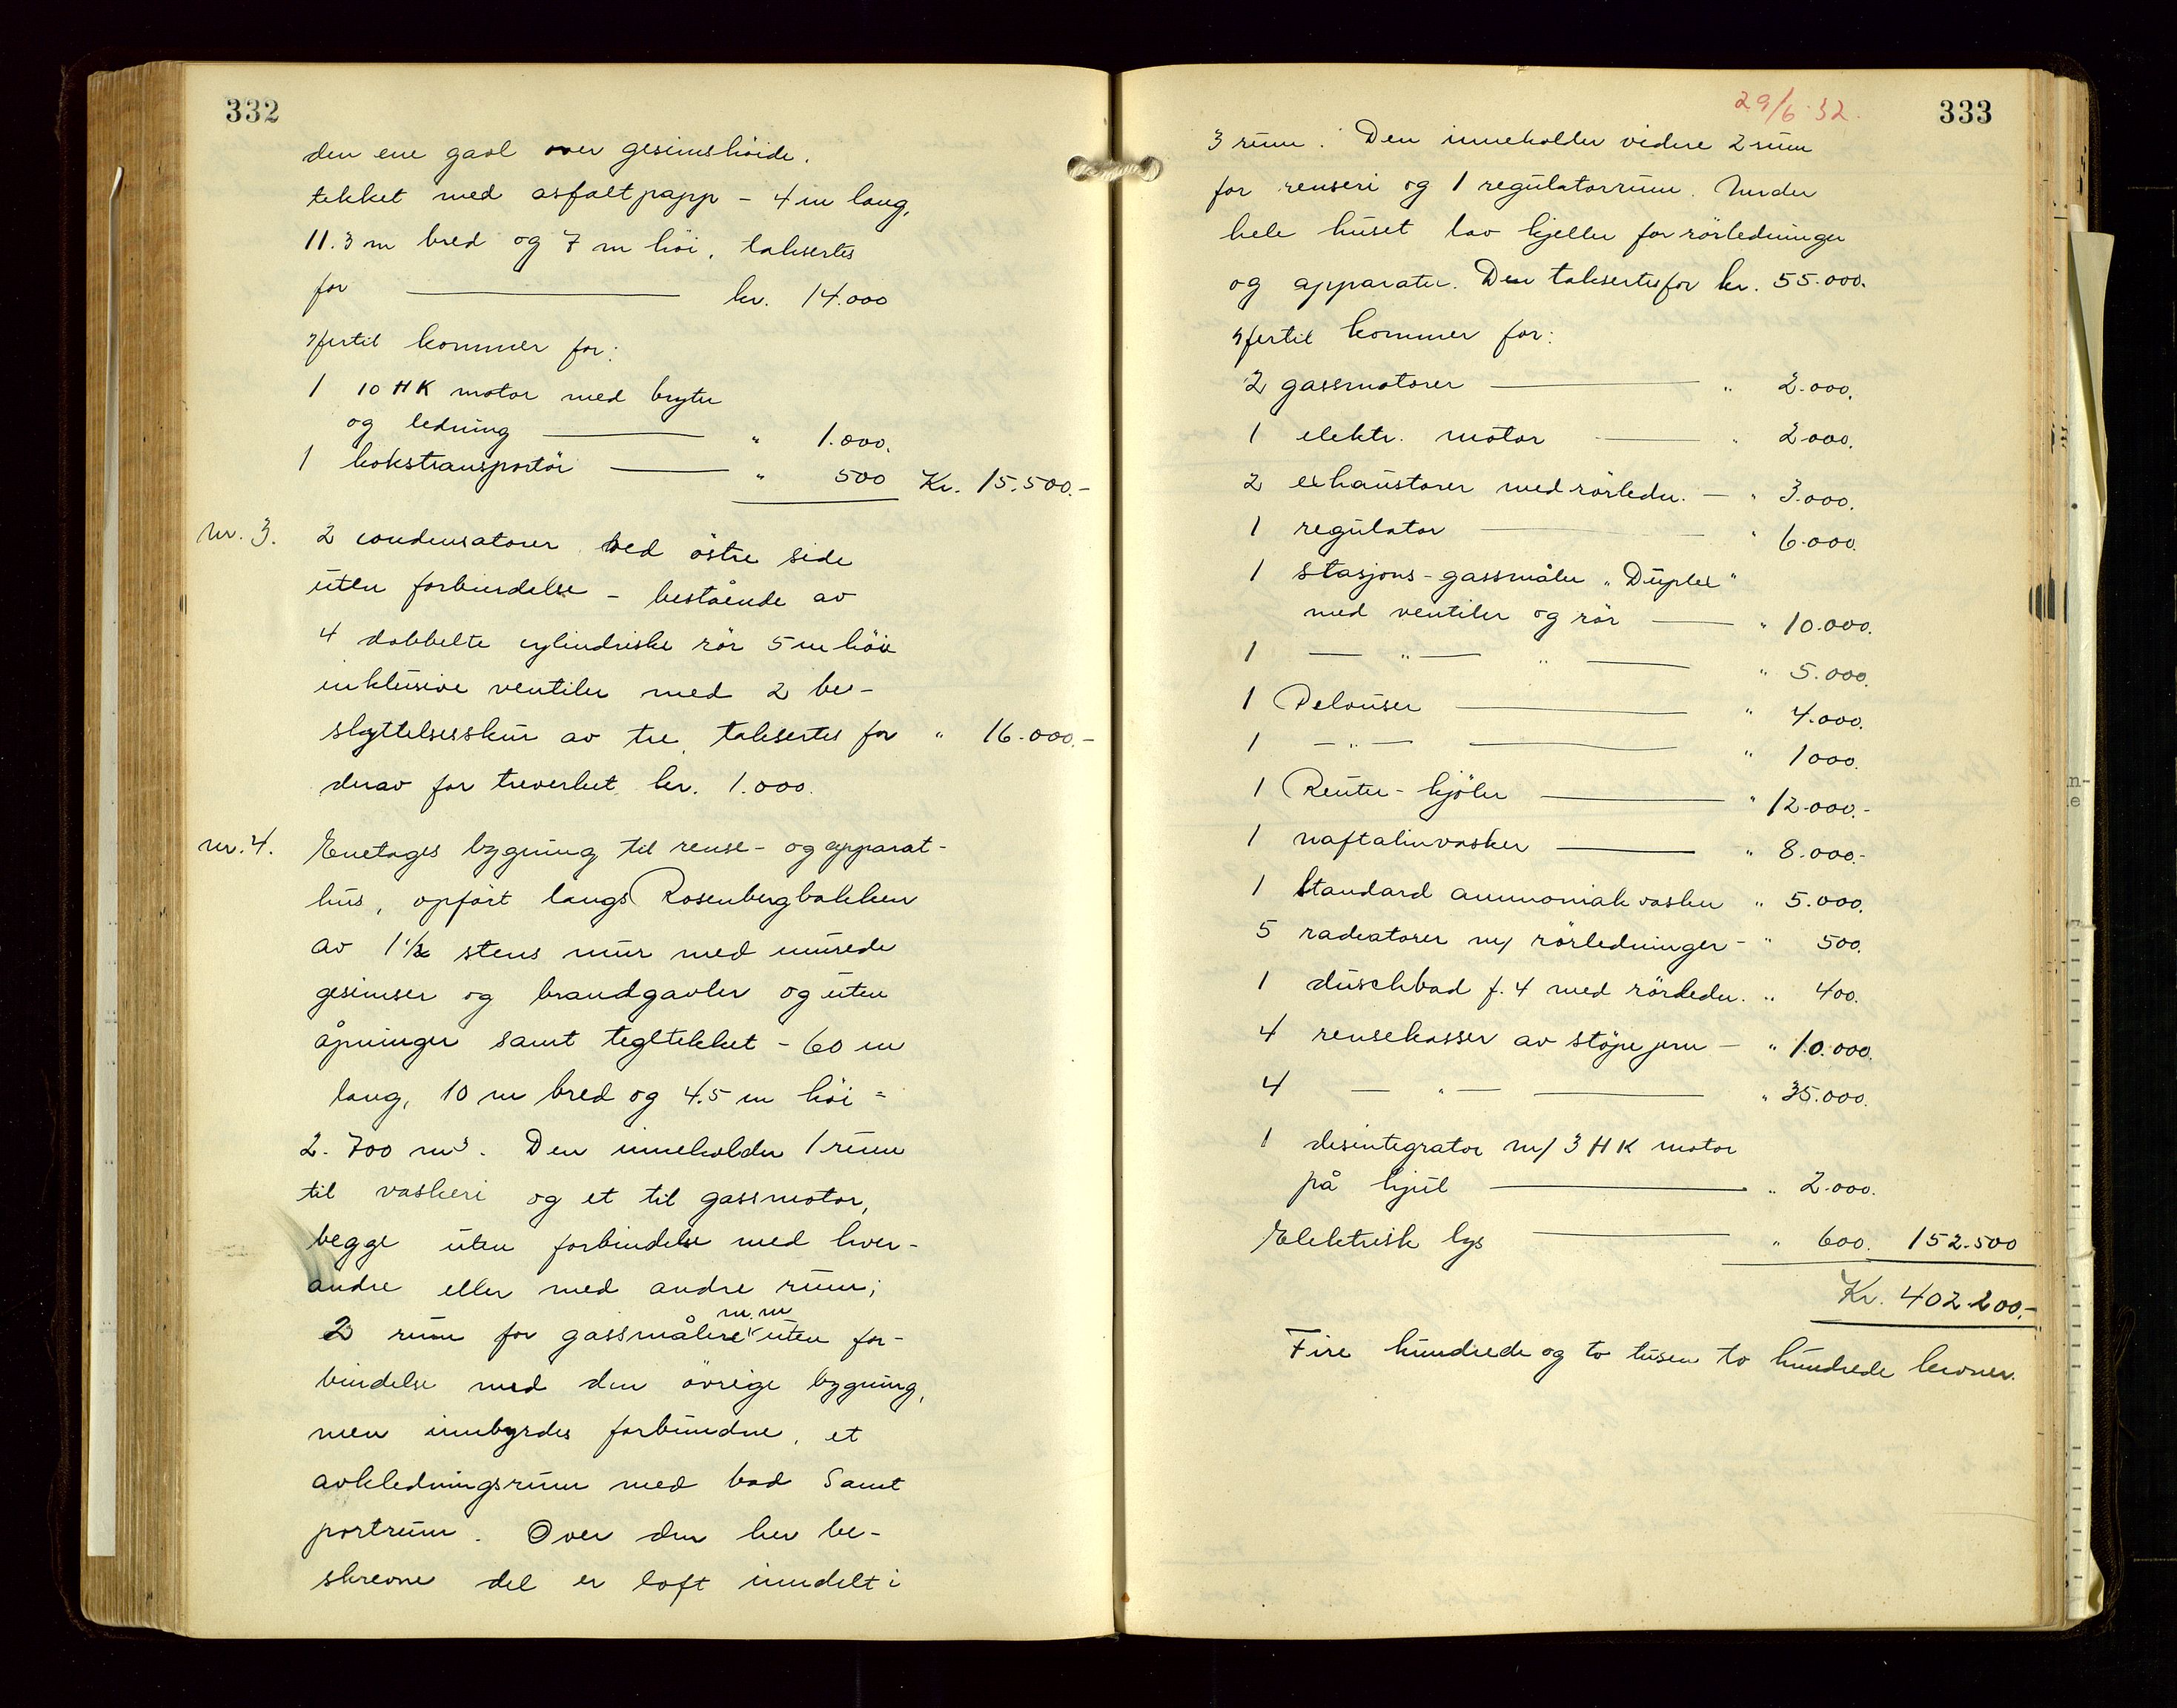 332
den ene gavl over gesimshöide,
tekket med asfaltpapp - 4 m lang,
11.3 m bred og 7 m höi, taksertes
for — kr. 14.000
Hertil kommer for:
1 10 HK motor med bryter
og ledning — " 1.000.
1 kokstransportör — " 500 Kr. 15.500.-
nr. 3. 2 condensatorer ved östre side
uten forbindelse - bestående av
4 dobbelte cylindriske rör 5 m höie
inklusive ventiler med 2 be-
skyttelsesskur av tre, taksertes for " 16.000.-
derav for treverket kr. 1.000.
nr. 4. Enetages bygning til rense- og apparat-
hus, opfört langs Rosenbergbakken
av 1 1/2 stens mur med murede
gesimser og brandgavler og uten
åpninger samt tegltekket - 60 m
lang, 10 m bred og 4.5 m höi =
2.700 m³. Den inneholder 1 rum
til vaskeri og et til gassmotor,
begge uten forbindelse med hver-
andre eller med andre rum;
2 rum for gassmålere m.m. uten for-
bindelse med den övrige bygning,
men innbyrdes forbundne, et
avkledningsrum med bad samt
portrum. Over den her be-
skrevne del er loft inndelt i
29/6.32.
333
3 rum. Den inneholder videre 2 rum
for renseri og 1 regulatorrum. Under
hele huset lav kjeller for rörledninger
og apparater. Den taksertes for kr. 55.000.
Hertil kommer for:
2 gassmotorer — " 2.000.
1 elektr. motor — " 2000.
2 exhaustorer med rörledn. — " 3.000.
1 regulator — " 6.000.
1 stasjons-gassmåler "Duplex"
med ventiler og rör — " 10.000.
1 — " — " — " 5.000.
1 Pelouser — " 4.000.
1 — " — — " 1000.
1 Reuter-kjöler — " 12.000.-
1 naftalinvasker — " 8.000.-
1 Standard ammoniakvasker " 5.000.
5 radiatorer m/ rörledninger - " 500.
1 duschbad f. 4 med rörledn. " 400.
4 rensekasser av stöpejern — " 10.000.
4 — " — — " 35.000.
1 desintegrator m/ 3 HK motor
på hjul — " 2.000.
Elektrisk lys — " 600. 152.500
Kr. 402.200.-
Fire hundrede og to tusen to hundrede kroner.